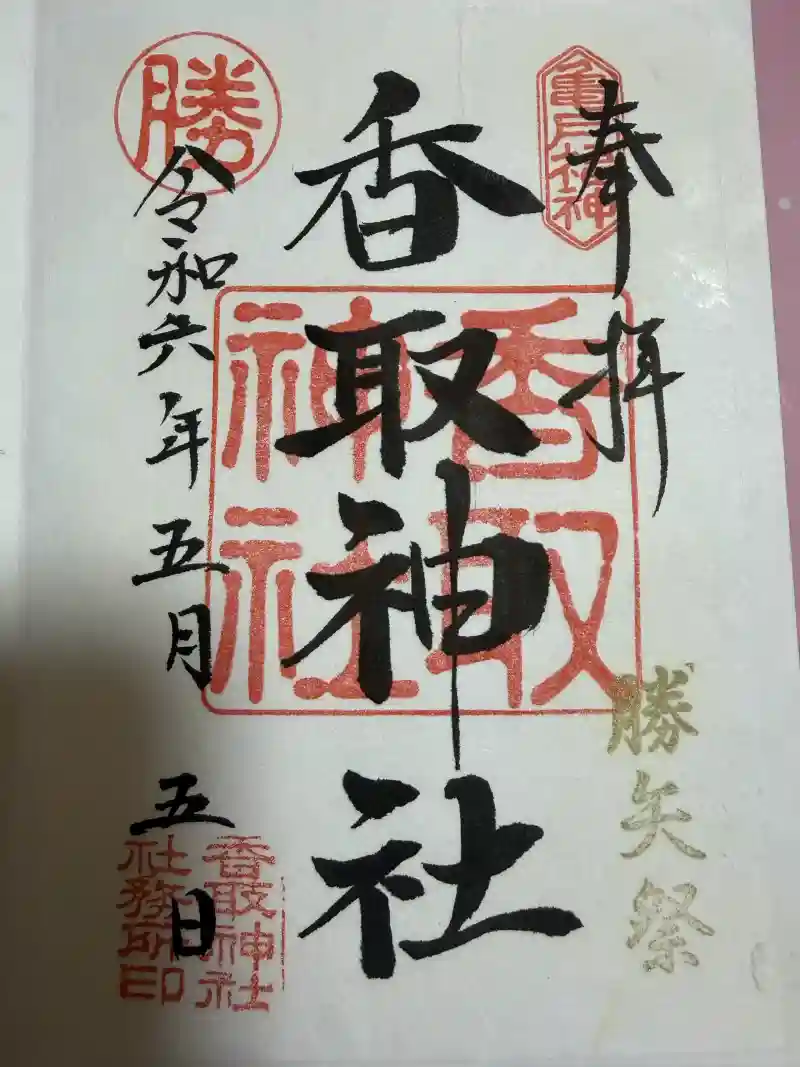 奉拝
亀戸鎮神
勝矢祭
香取神社
香取神社
勝
令和六年五月五日
香取神社
社務所印